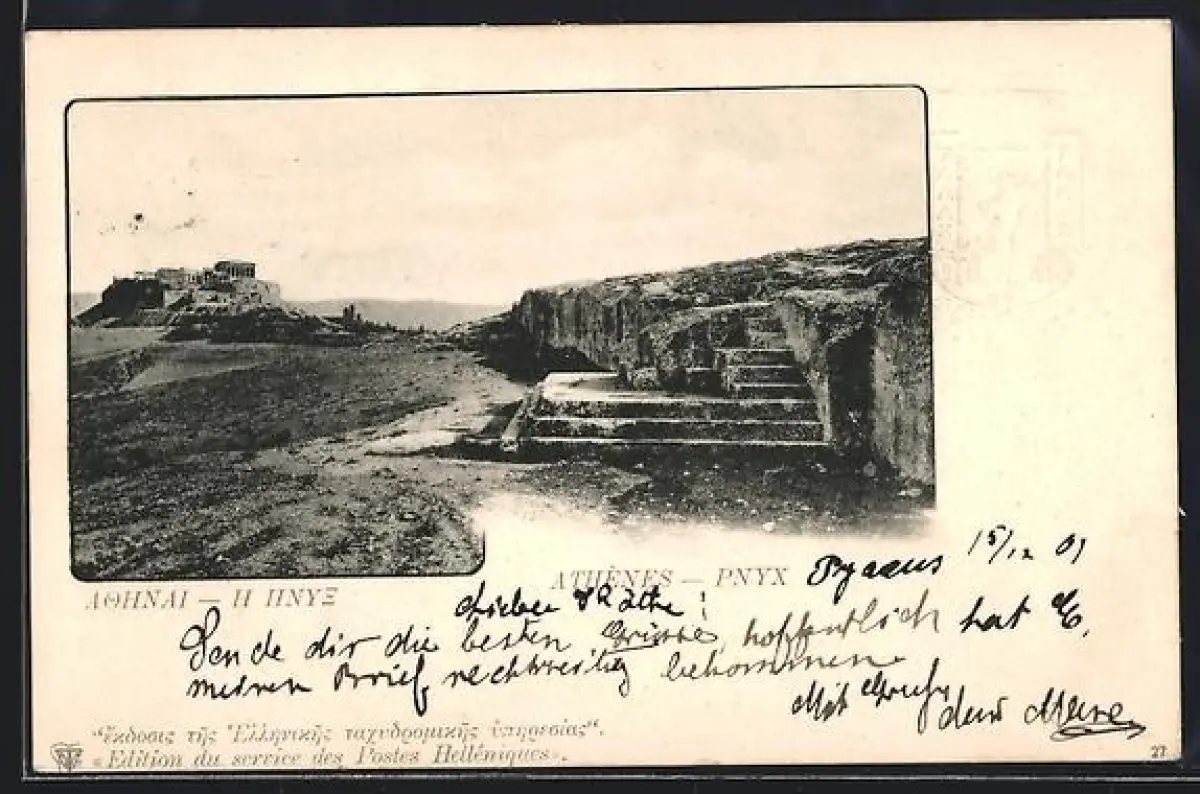 ΑΘΗΝΑΙ — Η ΠΝΥΞ
ATHÈNES — PNYX
Pyraeus 15/12 01
Lieber Käthe!
Sende dir die besten Grüsse, hoffentlich hat E.
meinen Brief rechtzeitig bekommen
Mit Gruß dein
"ἔκδοσις τῆς Ἑλληνικῆς ταχυδρομικῆς ὑπηρεσίας".
«Edition du service des Postes Helléniques».
27